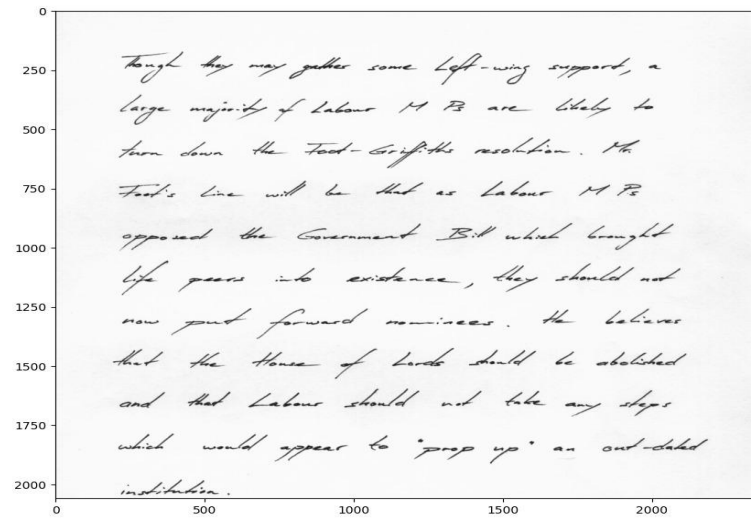 Though they may gather some Left-wing support, a
large majority of Labour M Ps are likely to
turn down the Foot-Griffiths resolution. Mr.
Foot's line will be that as Labour M Ps
opposed the Government Bill which brought
life peers into existence, they should not
now put forward nominees. He believes
that the House of Lords should be abolished
and that Labour should not take any steps
which would appear to "prop up" an out-dated
institution.
0
250
500
750
1000
1250
1500
1750
2000
0 500 1000 1500 2000